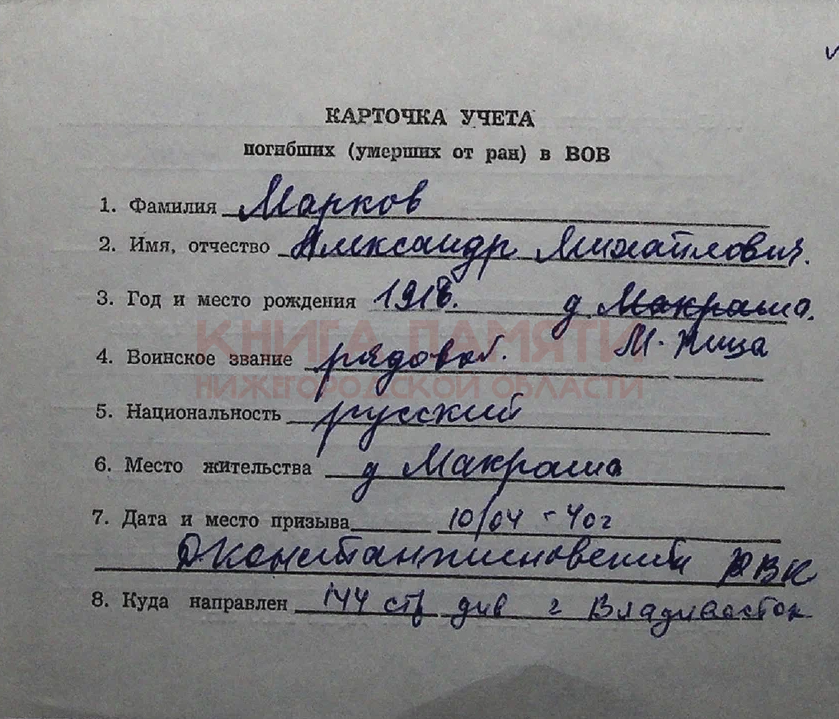 КАРТОЧКА УЧЕТА
погибших (умерших от ран) в ВОВ
1. Фамилия Марков
2. Имя, отчество Александр Михайлович.
3. Год и место рождения 1918. д Макраша.
М. Пица
КНИГА ПАМЯТИ
4. Воинское звание рядовой.
НИЖЕГОРОДСКОЙ ОБЛАСТИ
5. Национальность русский
6. Место жительства д Макраша
7. Дата и место призыва 10/04 - 40г
Дконстантиновский РВК
8. Куда направлен 144 стр див г Владивосток